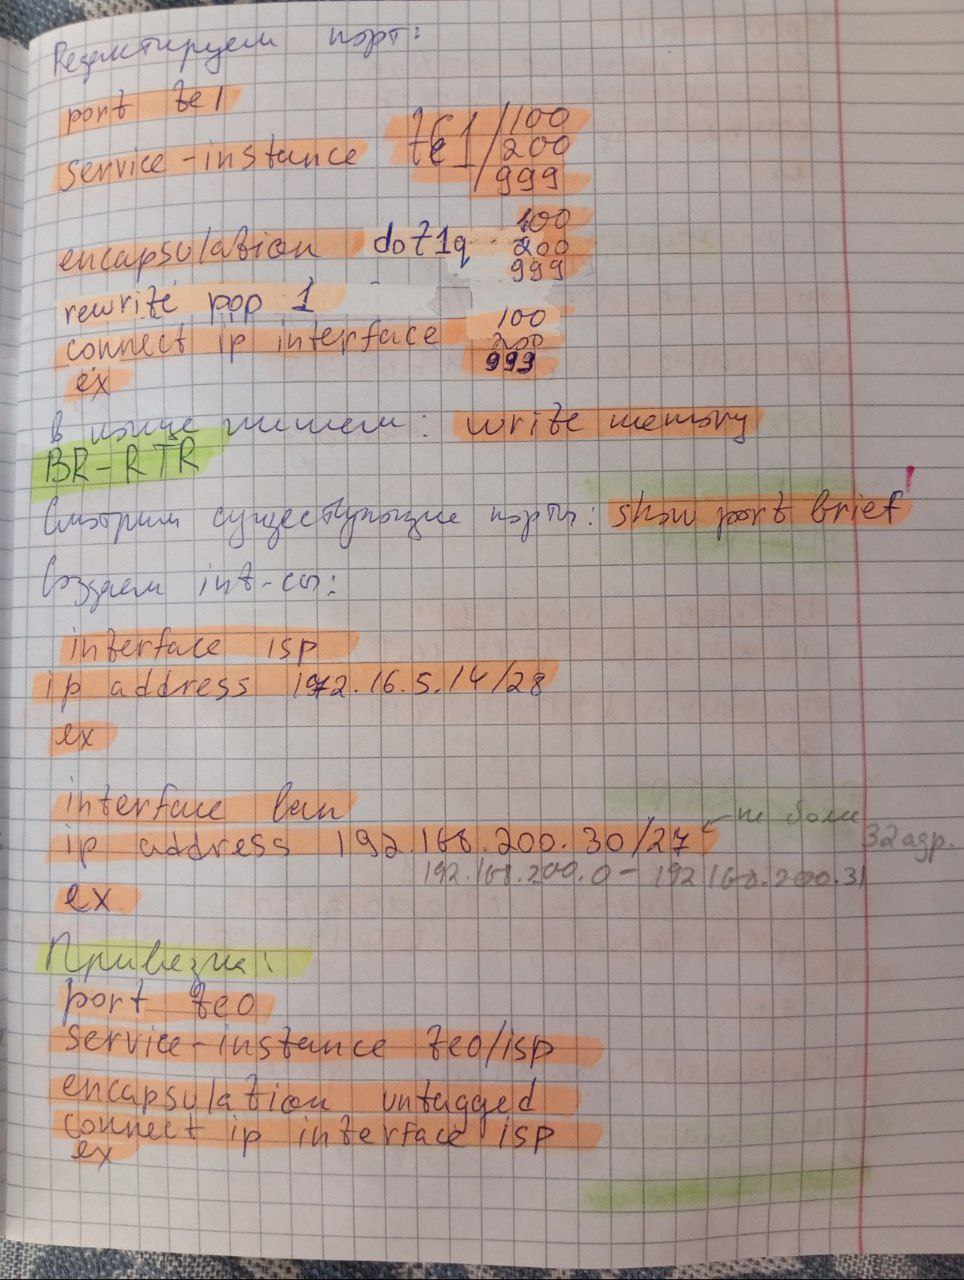 Редактируем порт:
port te1
service-instance te1/100
te1/200
999
encapsulation dot1q 100
200
999
rewrite pop 1
connect ip interface 100
200
999
ex
В конце пишем: write memory
BR-RTR
Смотрим существующие порты: show port brief!
Создаем int-сы:
interface isp
ip address 172.16.5.14/28
ex
interface lan
ip address 192.168.200.30/27 ← не более 32 адр.
192.168.200.0 - 192.168.200.31
ex
Привязка:
port te0
service-instance te0/isp
encapsulation untagged
connect ip interface isp
ex